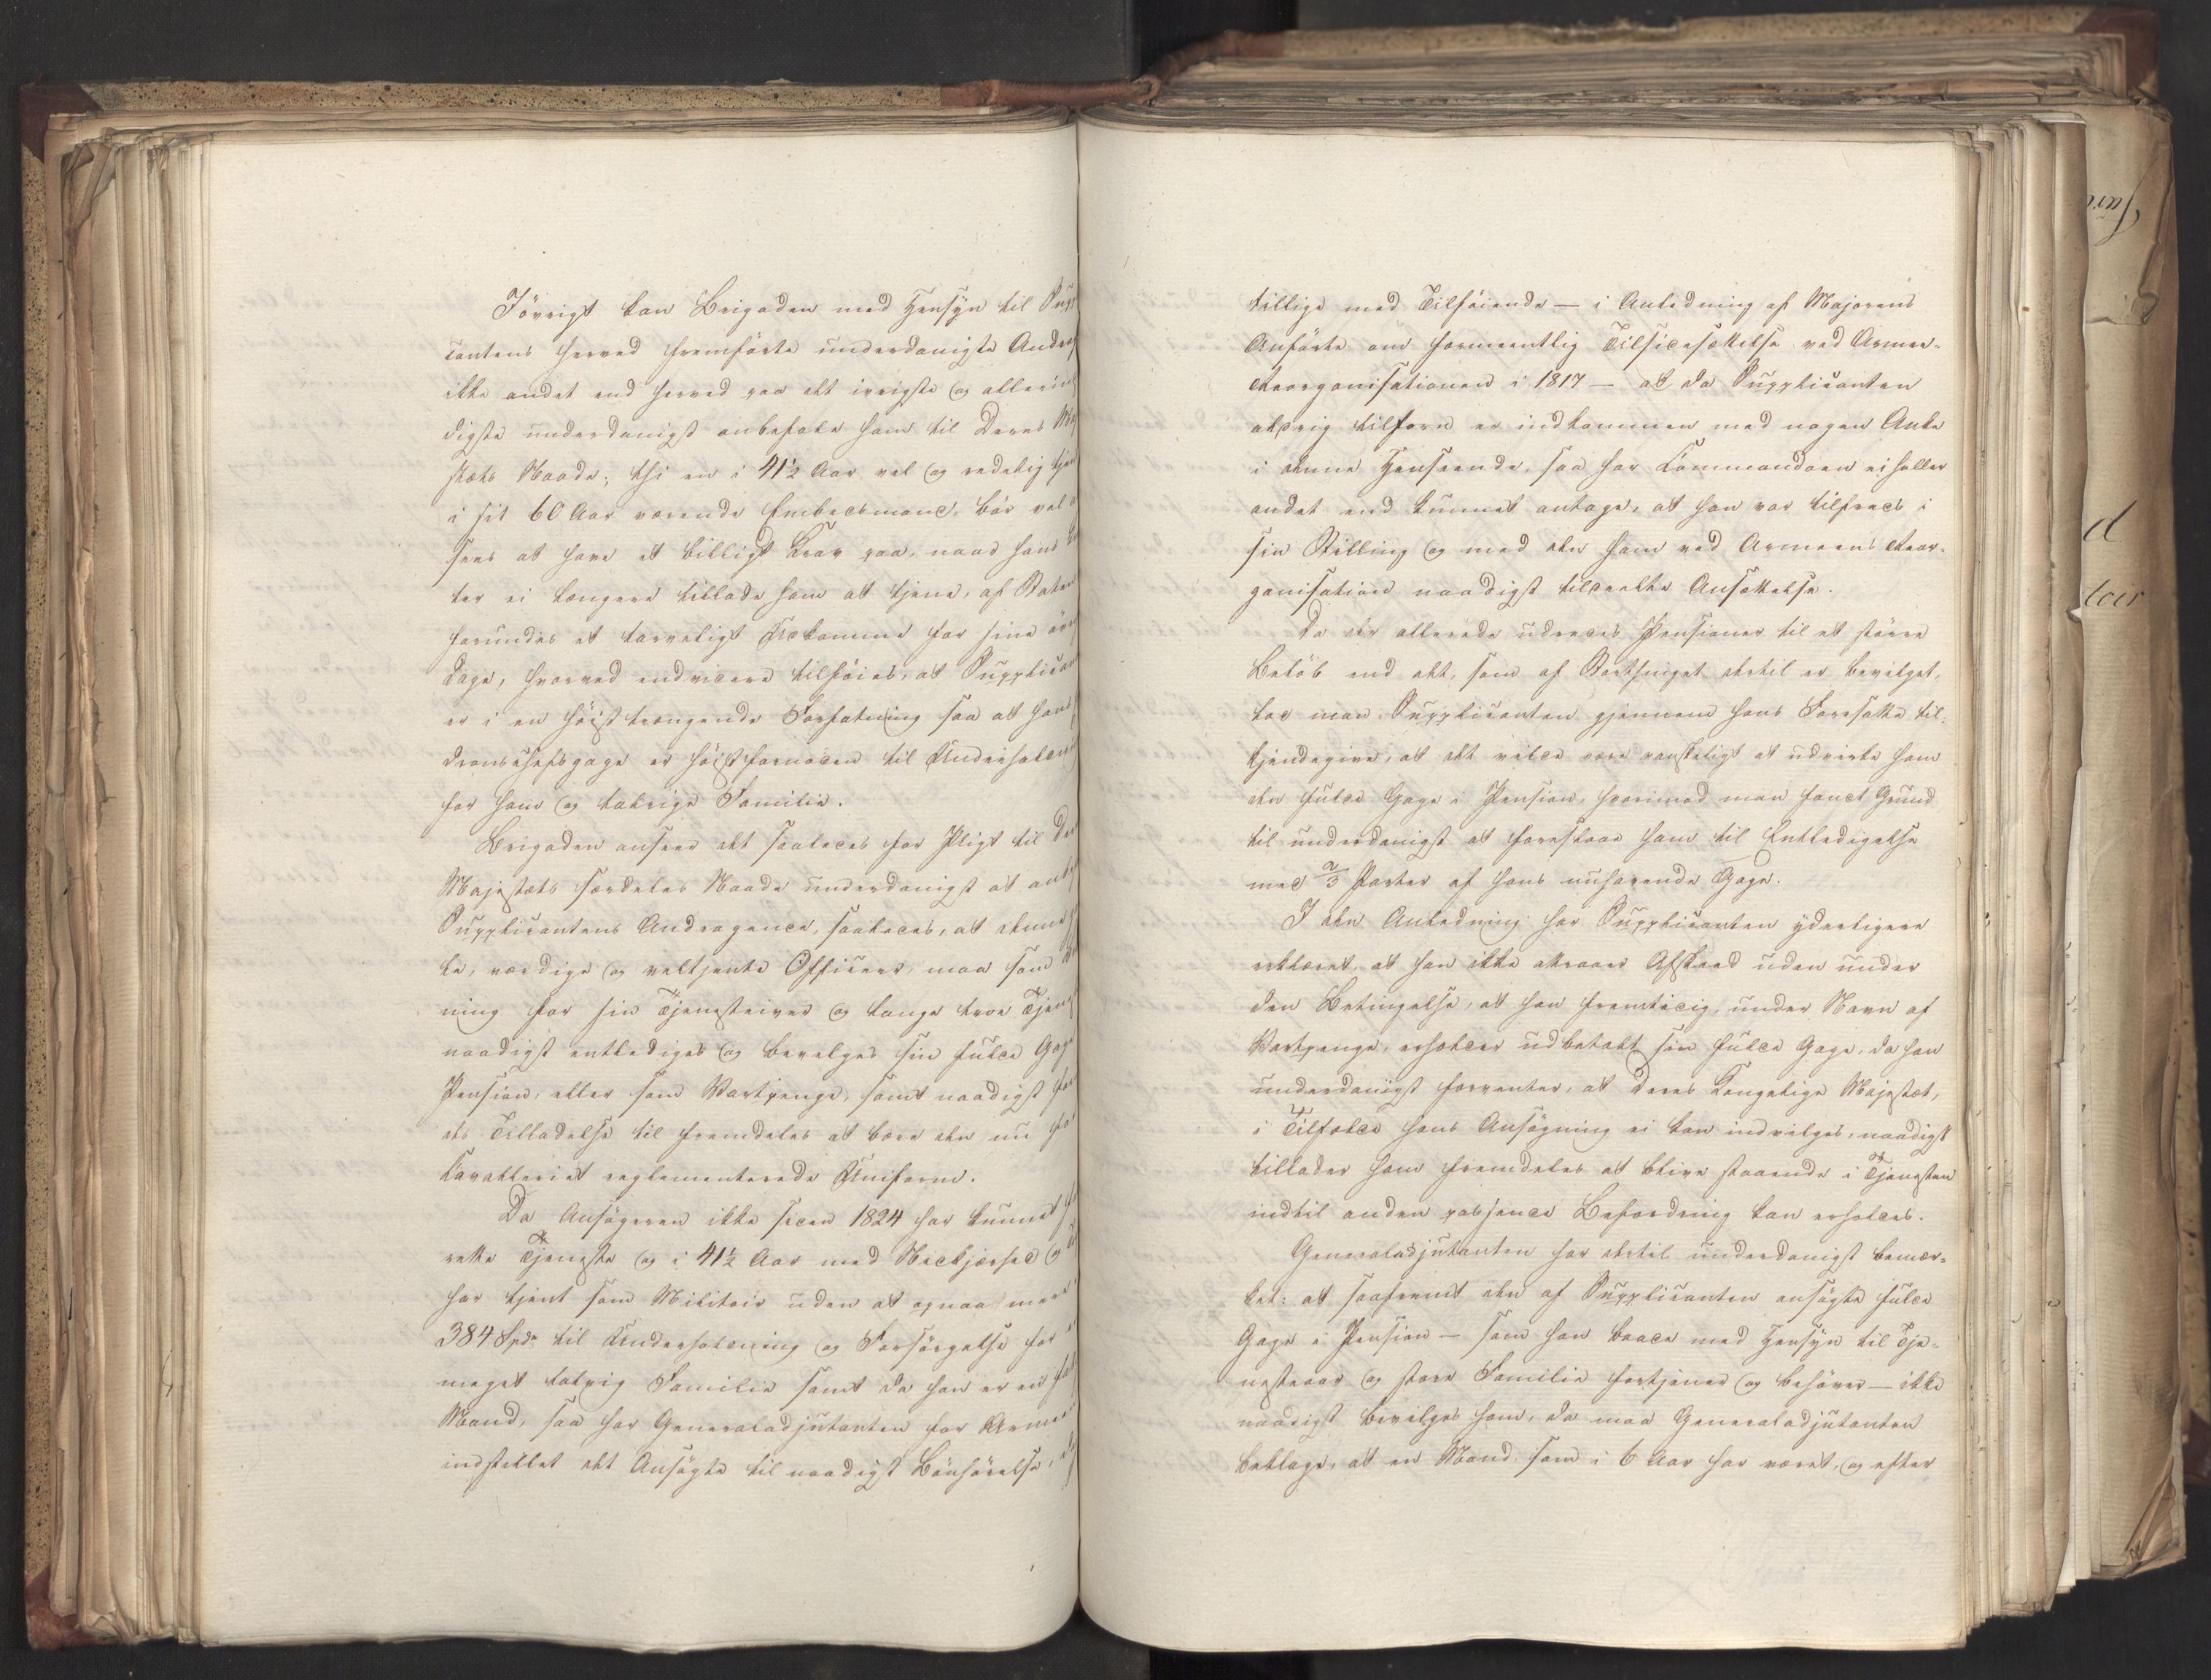 Iøvrigt kan Brigaden med Hensyn til Sup
cantens herved fremførte underdanigste Andrag
ikke andet end herved paa det ivrigste og allerin
digste underdanigst anbefale ham til Deres Maj
stæts Naade; thi en i 41½ Aar vel og redelig tjen
i sit 60 Aar værende Embedsmand, bør vel a
sees at have et billigt Krav paa, naar hans
ter ei længere tillade ham at tjene, af Staten
forundes et tarveligt Udkomme for sine øvr
Dage, hvorved endvidere tilføies, at Supplican
er i en høist trængende Forfatning saa at hans
dronschefsgage er høist fornøden til Underholdni
for ham og talrige Familie.
Brigaden anseer det saaledes for Pligt til De
Majestæts særdeles Naade underdanigst at anb
Supplicantens Andragende, saaledes, at denne
le, værdige og veltjente Officeer, maa som
ning for sin Tjenesteiver og lange troe Tjen
naadigst entlediges og bevilges sin fulde Gag
Pension, eller som Vartpenge, samt naadigst for
des Tilladelse til fremdeles at bære den nu for
Cavalleriet reglementerede Uniform.
Da Ansøgeren ikke siden 1824 har kunnet
rette Tjeneste og i 41½ Aar med Nidkjærhed og
har tjent som Militair uden at opnaa mere
384 Spd. til Underholdning og Forsørgelse for
meget talrig Familie samt da han er en
Mand, saa har Generaladjutanten for Armee
indstillet det Ansøgte til naadigst Bønhørelse,
tillige med Tilføiende — i Anledning af Majorens
Anførte om formeentlig Tilsidesættelse ved Armee-
Reorganisationen i 1817 — at da Supplicanten
aldrig tilforn er indkommen med nogen Anke
i denne Henseende, saa har Commandoen ei heller
andet end kunnet antage, at han var tilfreds i
sin Stilling og med den ham ved Armeens Reor-
ganisation naadigst tildeelte Ansættelse.
Da der allerede udredes Pensioner til et større
Beløb end det, som af Storthinget dertil er bevilget,
lod man Supplicanten gjennem hans Foresatte til-
kjendegive, at det vilde være vanskeligt at udvirke ham
den fulde Gage i Pension, hvorimod man fandt Grund
til underdanigst at foreslaae ham til Entledigelse
med 2/3 Parter af hans nuhavende Gage.
I den Anledning har Supplicanten yderligere
erklæret, at han ikke attraaer Afskeed uden under
den Betingelse, at han fremtidig, under Navn af
Vartpenge, erholder udbetalt sin fulde Gage, da han
underdanigst forventer, at Deres Kongelige Majestæt,
i Tilfælde hans Ansøgning ei kan indvilges, naadigst
tillader ham fremdeles at blive staaende i Tjenesten
indtil anden passende Befordring kan erholdes.
Generaladjutanten har dertil underdanigst bemær-
ket: at saafremt den af Supplicanten ansøgte fulde
Gage i Pension — som han baade med Hensyn til Tje-
nesteaar og store Familie fortjener og behøver — ikke
naadigst bevilges ham, da maa Generaladjutanten
beklage, at en Mand, som i 6 Aar har været, og efter